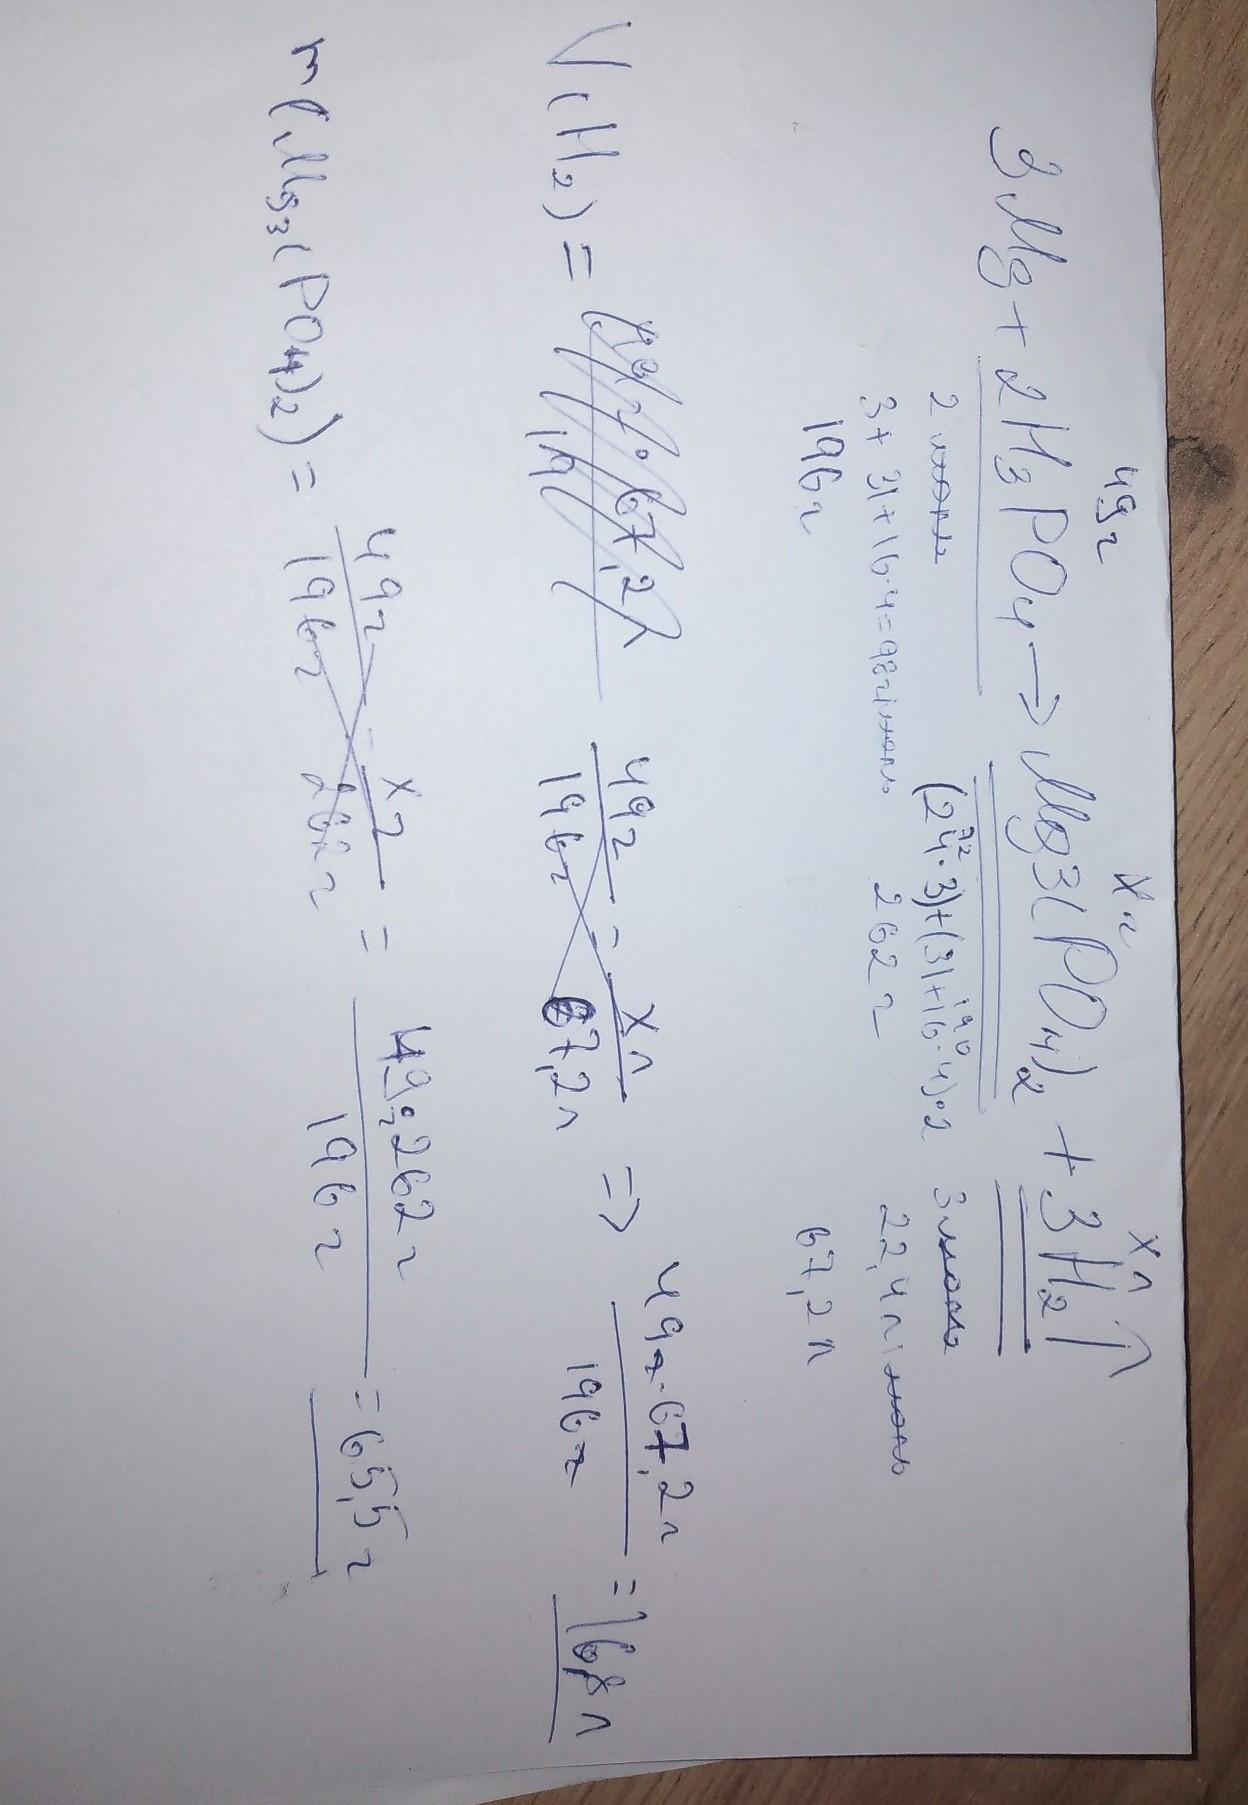 49г xг xл
3Mg + 2H3PO4 → Mg3(PO4)2 + 3H2↑
72 190
2 моль (24·3)+(31+16·4)·2 3 моль
3+31+16·4=98г/моль 262г 22,4л/моль
196г 67,2л
V(H2) = 49г/196г = xл/67,2л => 49г·67,2л/196г = 16,8л
m(Mg3(PO4)2) = 49г/196г = xг/262г = 49г·262г/196г = 65,5г